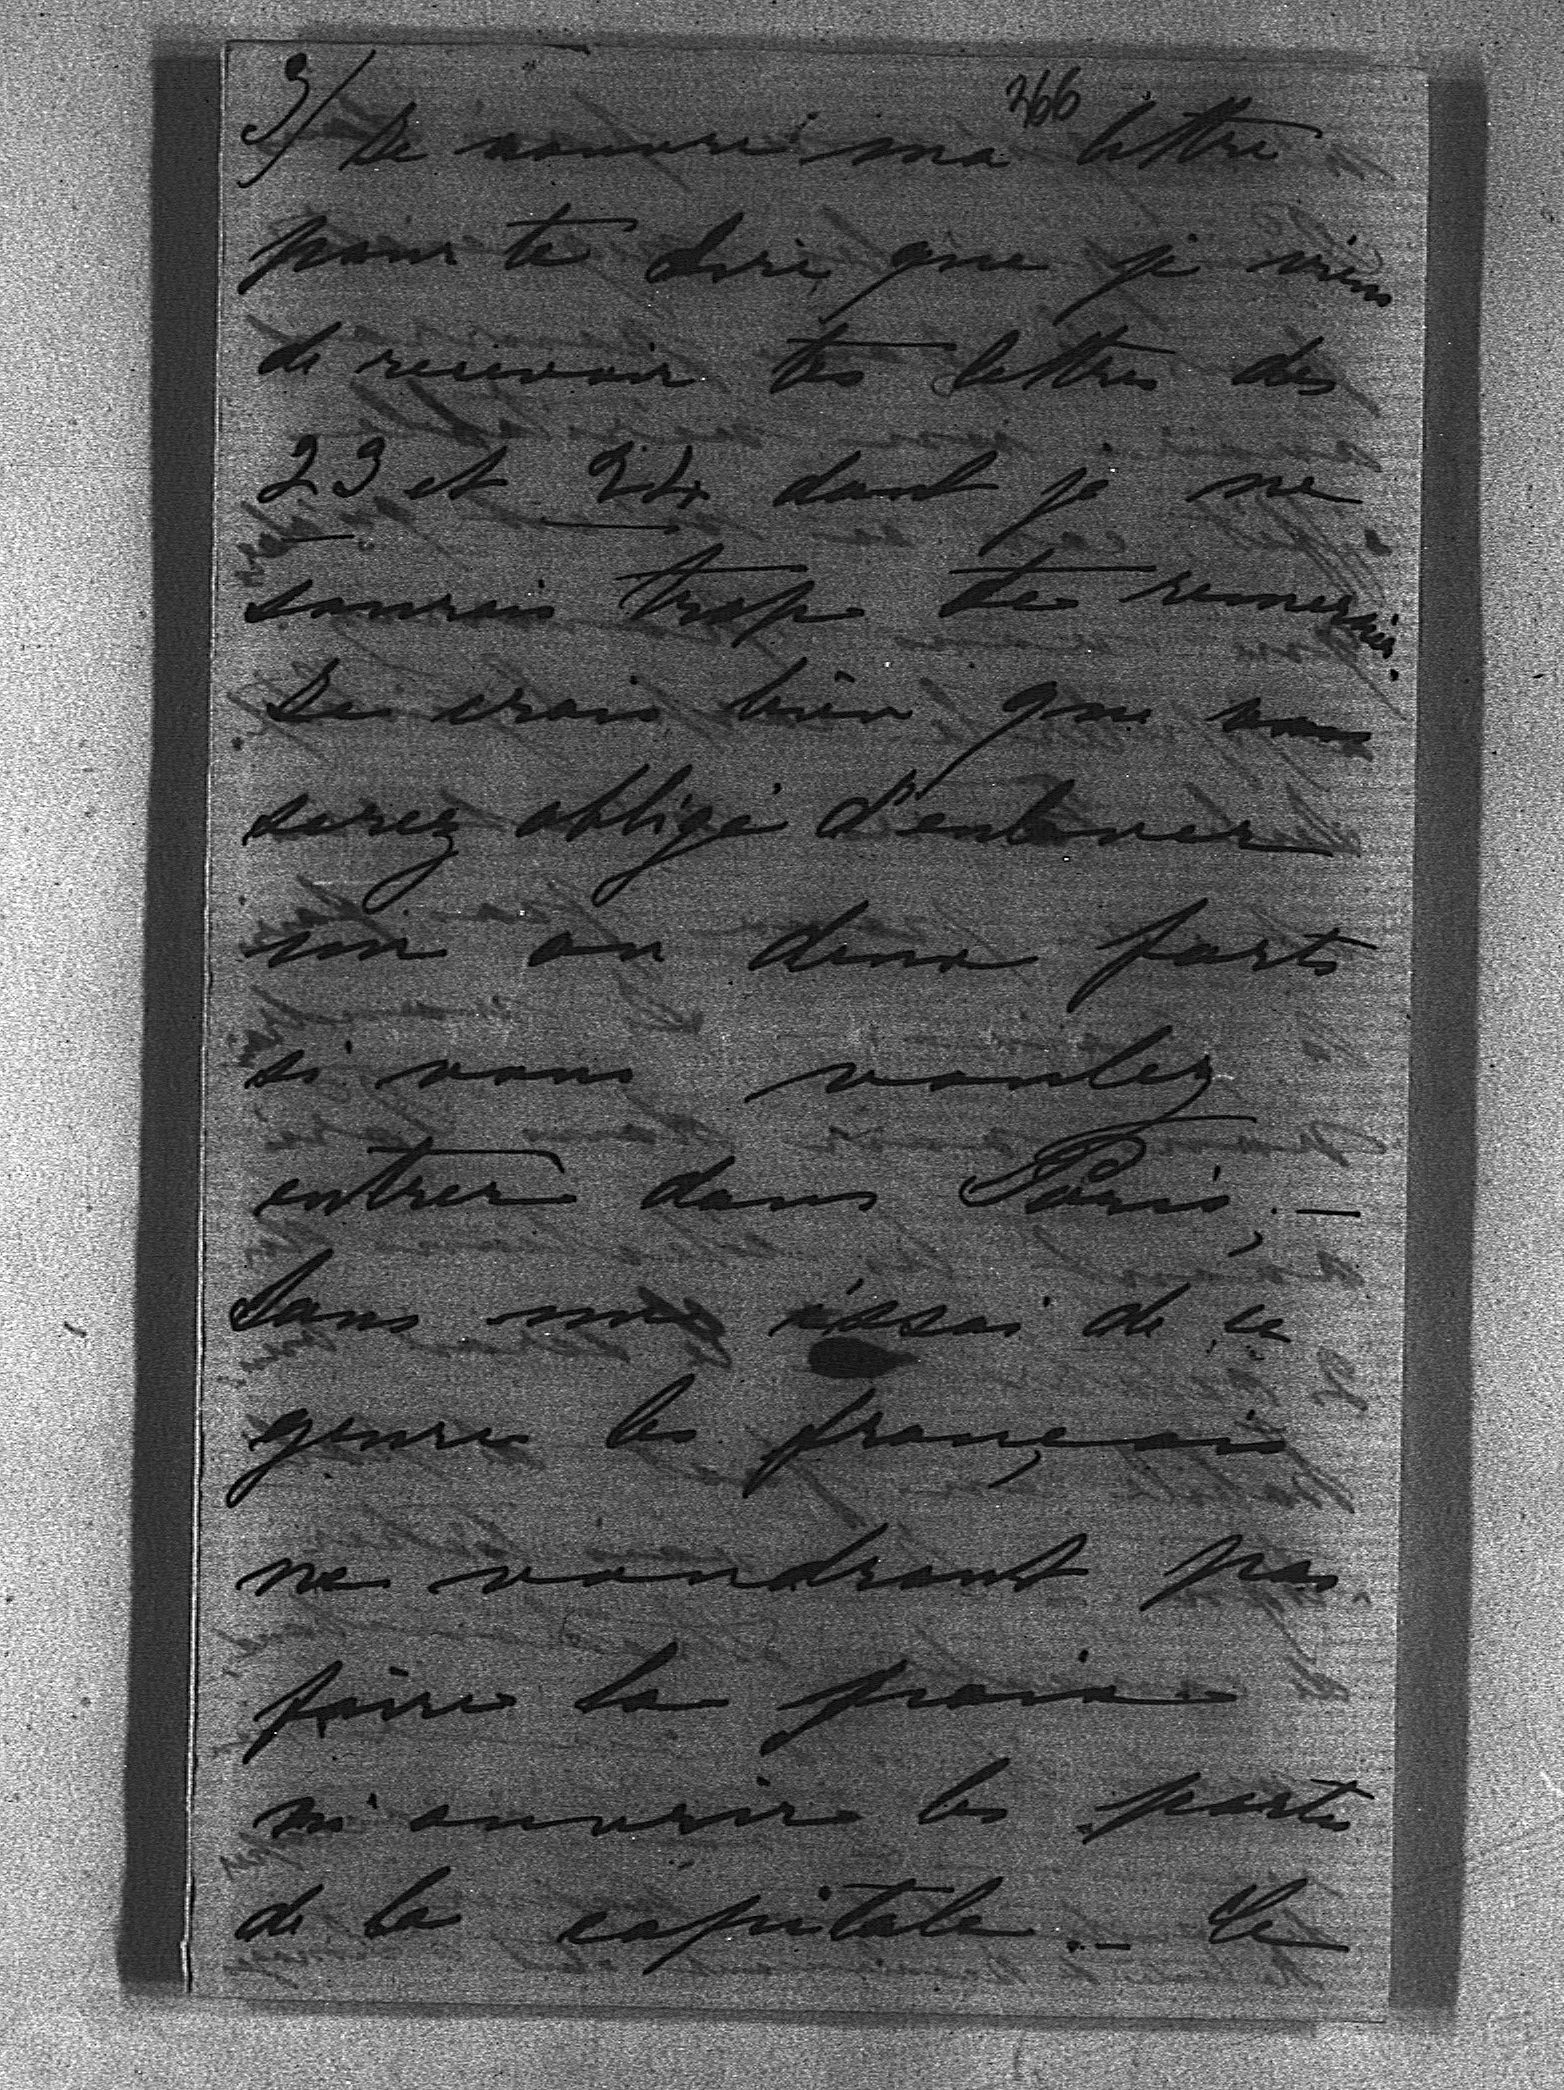 3/ 366
Je rouvre ma lettre
pour te dire, que je viens
de recevoir tes lettres des
23 et 24 dont je ne
saurais trop te remercier.
Je crois bien que vous
serez obligé d'enlever
un ou deux forts
si vous voulez
entrer dans Paris, —
Sans un essai de ce
genre les français
ne voudront pas
faire la paix
ni ouvrir les portes
de la capitale. — Le